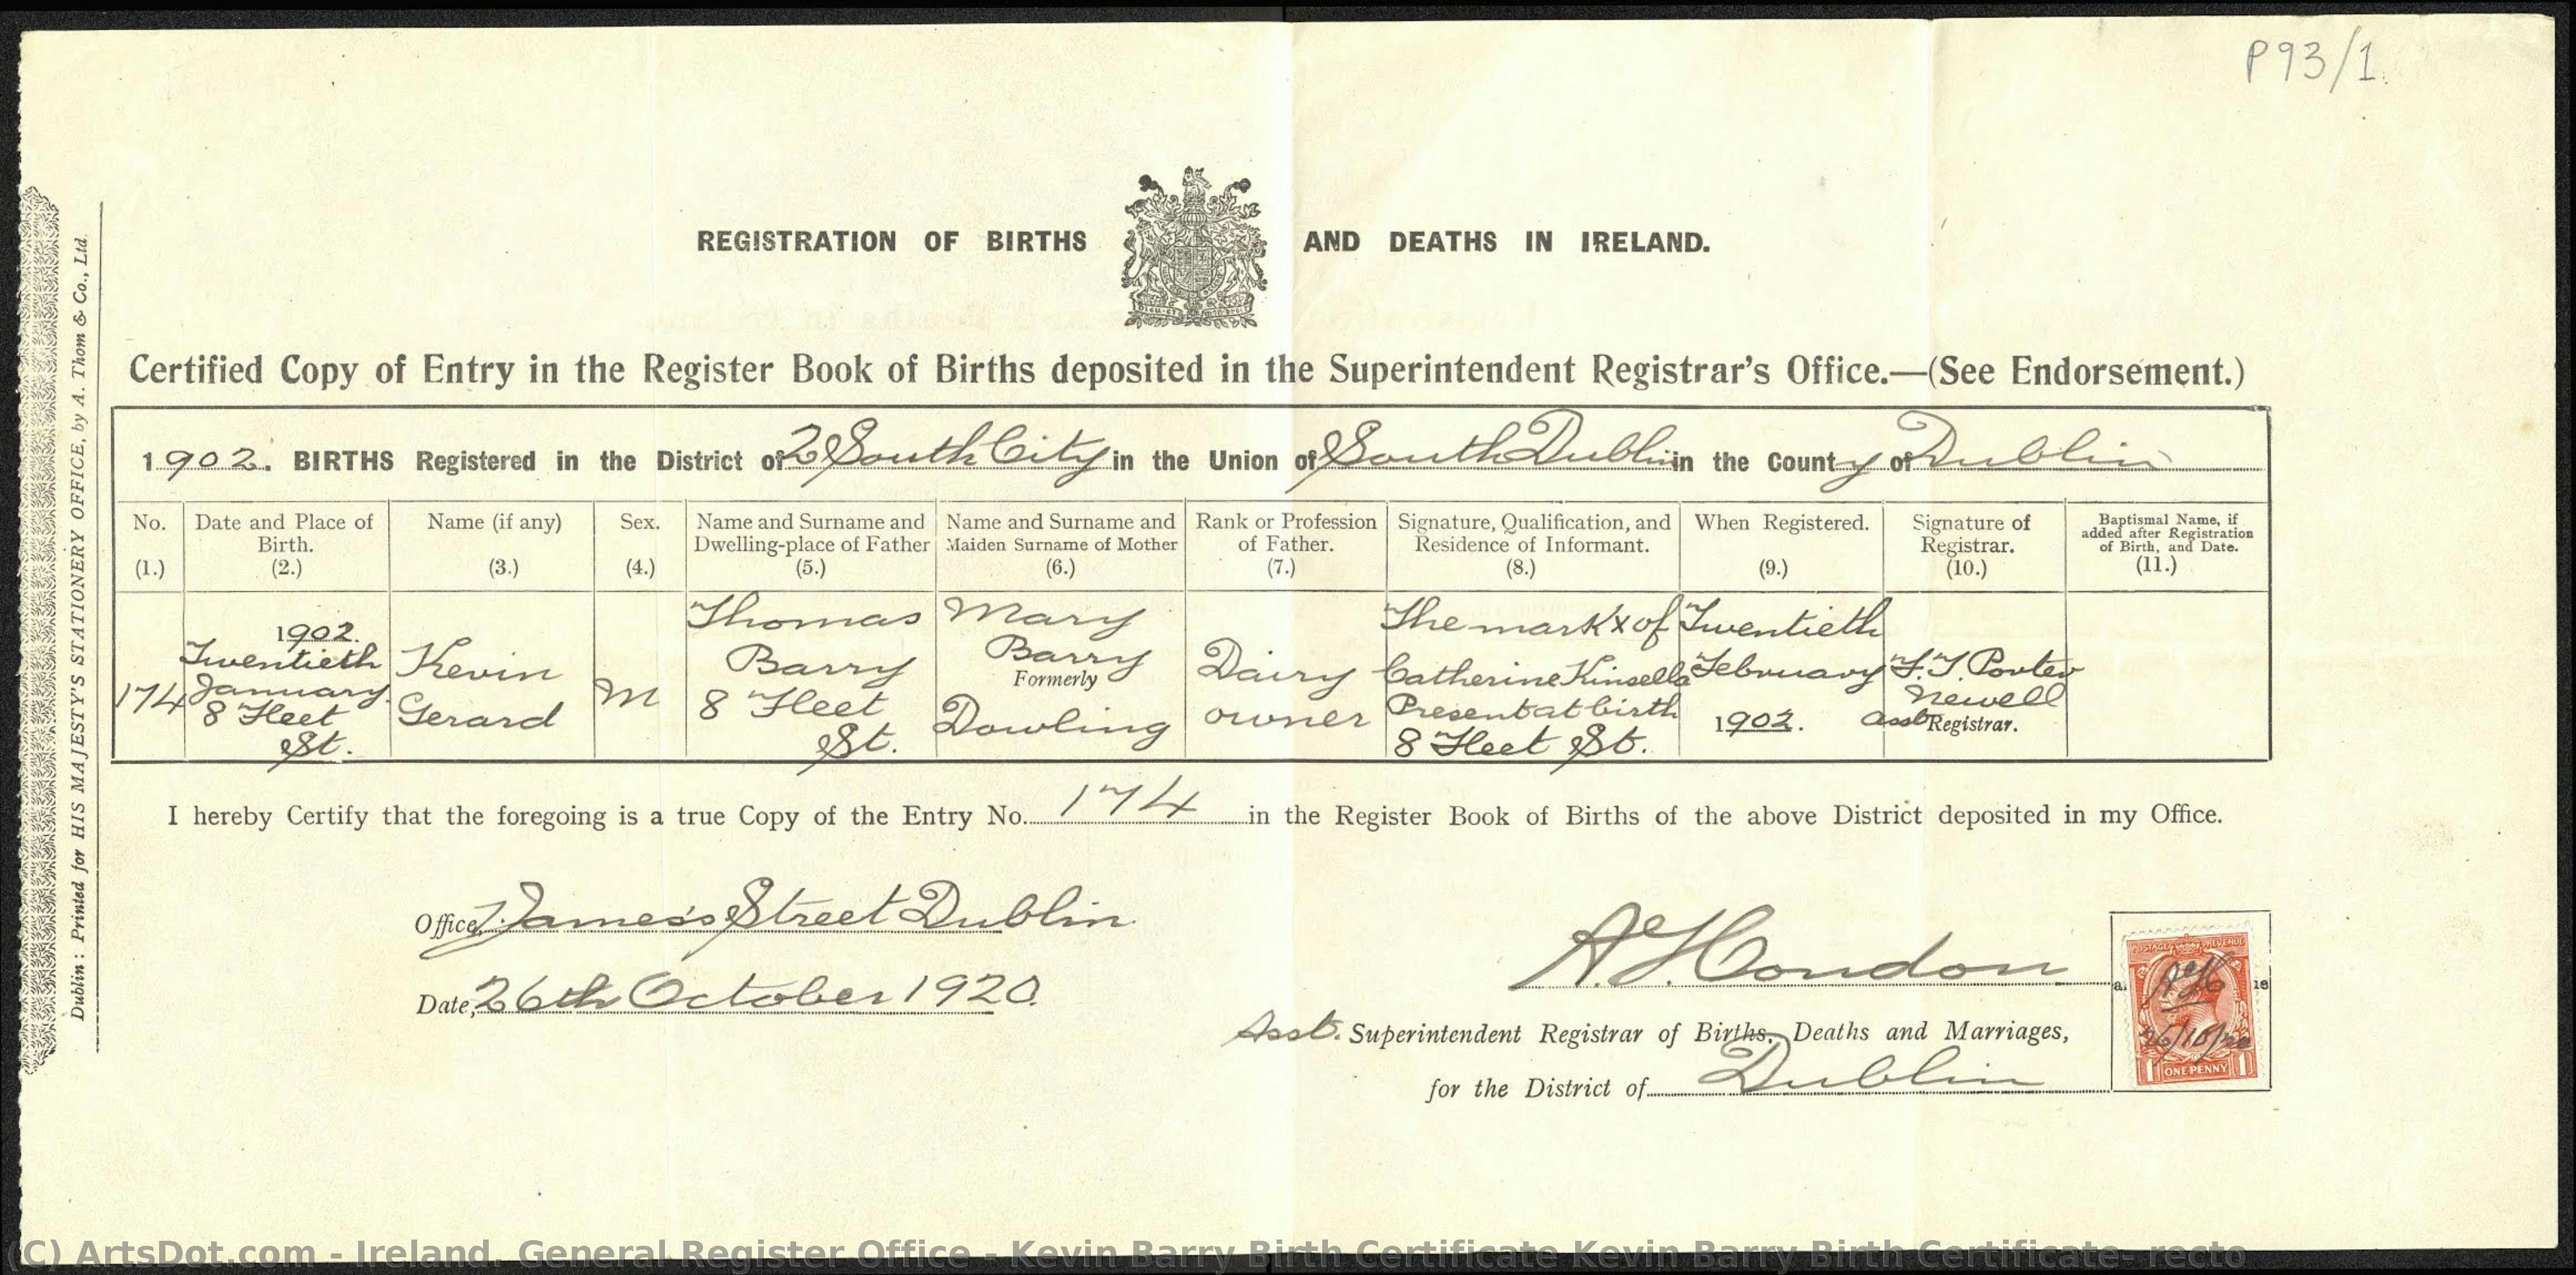 P93/1.
REGISTRATION OF BIRTHS AND DEATHS IN IRELAND.
Certified Copy of Entry in the Register Book of Births deposited in the Superintendent Registrar's Office.—(See Endorsement.)
1902. BIRTHS Registered in the District of 2 South City in the Union of South Dublin in the County of Dublin
No.
(1.)
Date and Place of
Birth.
(2.)
Name (if any)
(3.)
Sex.
(4.)
Name and Surname and
Dwelling-place of Father
(5.)
Name and Surname and
Maiden Surname of Mother
(6.)
Rank or Profession
of Father.
(7.)
Signature, Qualification, and
Residence of Informant.
(8.)
When Registered.
(9.)
Signature of
Registrar.
(10.)
Baptismal Name, if
added after Registration
of Birth, and Date.
(11.)
174
1902.
Twentieth
January
8 Fleet
St.
Kevin
Gerard
M
Thomas
Barry
8 Fleet
St.
Mary
Barry
Formerly
Dowling
Dairy
owner
The mark X of
Catherine Kinsella
Present at birth
8 Fleet St.
Twentieth
February
1902.
F. J. Porter
Newell
Asst Registrar.
I hereby Certify that the foregoing is a true Copy of the Entry No. 174 in the Register Book of Births of the above District deposited in my Office.
Office, 1 James's Street Dublin.
Date, 26th October 1920.
A. J. Condon
Asst. Superintendent Registrar of Births, Deaths and Marriages,
for the District of Dublin
POSTAGE REVENUE
26/10/20
1 ONE PENNY 1
Dublin: Printed for HIS MAJESTY'S STATIONERY OFFICE, by A. Thom & Co., Ltd
(C) ArtsDot.com - Ireland. General Register Office - Kevin Barry Birth Certificate Kevin Barry Birth Certificate- recto